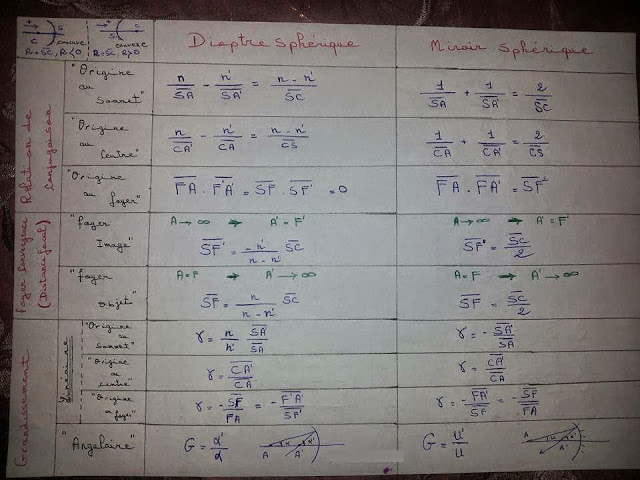 + S C concave R = SC, R<0
+ S C convexe R = SC, R>0
Dioptre Sphérique
Miroir Sphérique
Relation de conjugaison
"Origine au Sommet"
n/SA - n'/SA' = n - n'/SC
1/SA + 1/SA' = 2/SC
"Origine au Centre"
n/CA' - n'/CA = n - n'/CS
1/CA + 1/CA' = 2/CS
"Origine au foyer"
FA . F'A' = SF . SF' = 0
FA . FA' = SF²
foyer
(Distance focal)
"foyer Image"
A → ∞ ⇒ A' = F'
SF' = -n'/n - n' SC
A → ∞ ⇒ A' = F'
SF' = SC/2
"foyer objet"
A = F ⇒ A' → ∞
SF = n/n - n' SC
A = F ⇒ A' → ∞
SF = SC/2
Grandissement
Linéaire
"Origine au Sommet"
γ = n/n' SA'/SA
γ = - SA'/SA
"Origine au centre"
γ = CA'/CA
γ = CA'/CA
"Origine au foyer"
γ = - SF/FA = - F'A'/SF'
γ = - FA'/SF = - SF/FA
"Angulaire"
G = α'/α
A A'
G = u'/u
A A'